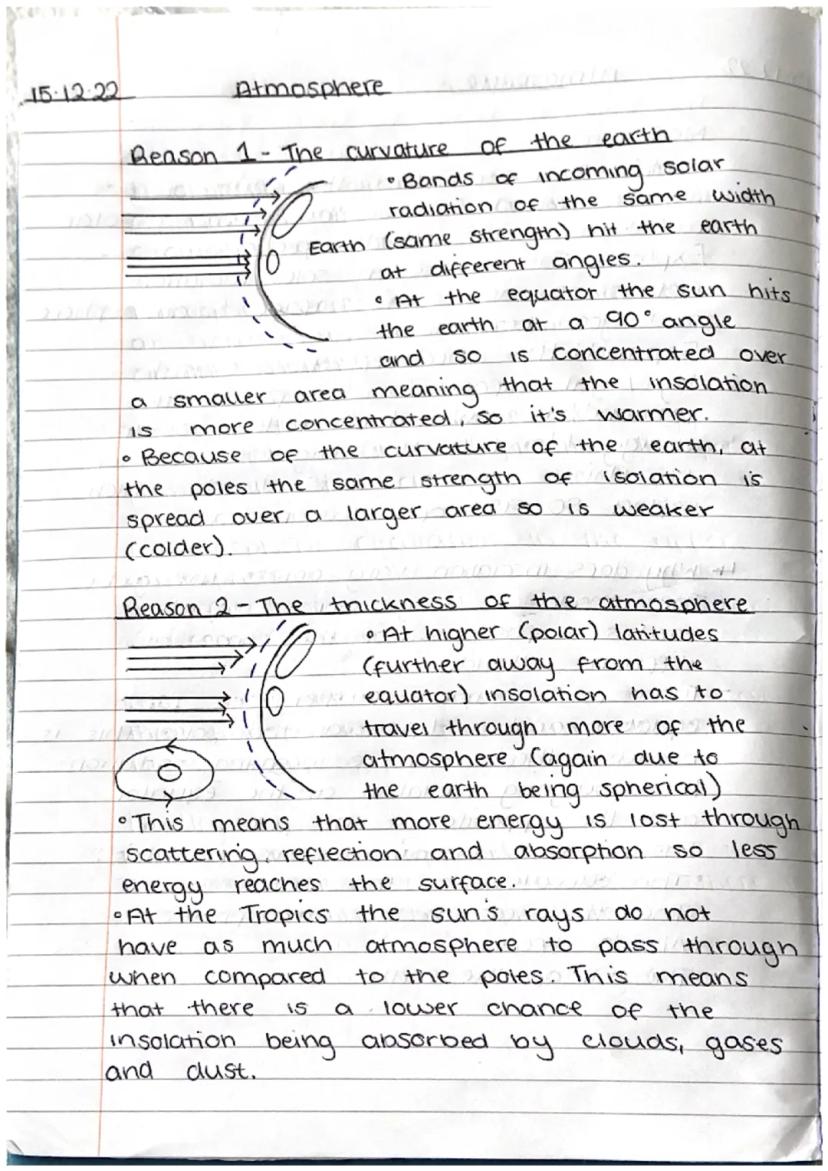 15.12.22 Atmosphere
Reason 1 - The curvature of the earth
• Bands of incoming solar
radiation of the same width
Earth (same strength) hit the earth
at different angles.
• At the equator the sun hits
the earth at a 90° angle
and so is concentrated over
a smaller area meaning that the insolation
is more concentrated, so it's warmer.
• Because of the curvature of the earth, at
the poles the same strength of isolation is
spread over a larger area so is weaker
(colder).
Reason 2 - The thickness of the atmosphere
• At higher (polar) latitudes
(further away from the
equator) insolation has to
travel through more of the
atmosphere (again due to
the earth being spherical)
• This means that more energy is lost through
scattering, reflection and absorption so less
energy reaches the surface.
• At the Tropics the sun's rays do not
have as much atmosphere to pass through
when compared to the poles. This means
that there is a lower chance of the
insolation being absorbed by clouds, gases
and dust.